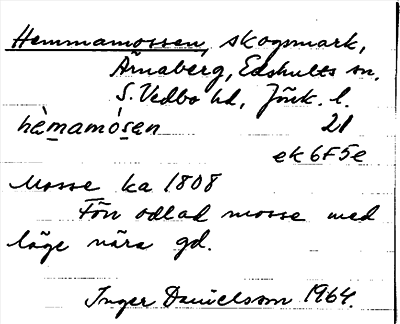 Hemmamossen, skogsmark,
Årnaberg, Edshults sn,
S. Vedbo hd, Jönk. l.
hèmamósen 21
ek 6F5e
Mosse ka 1808
Förr odlad mosse med
läge nära gd.
Inger Danielsson 1964.